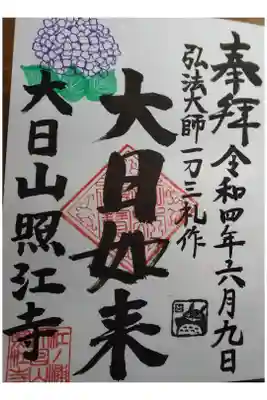 奉拝
令和四年六月九日
弘法大師一刀三礼作
大日如来
大日山照江寺